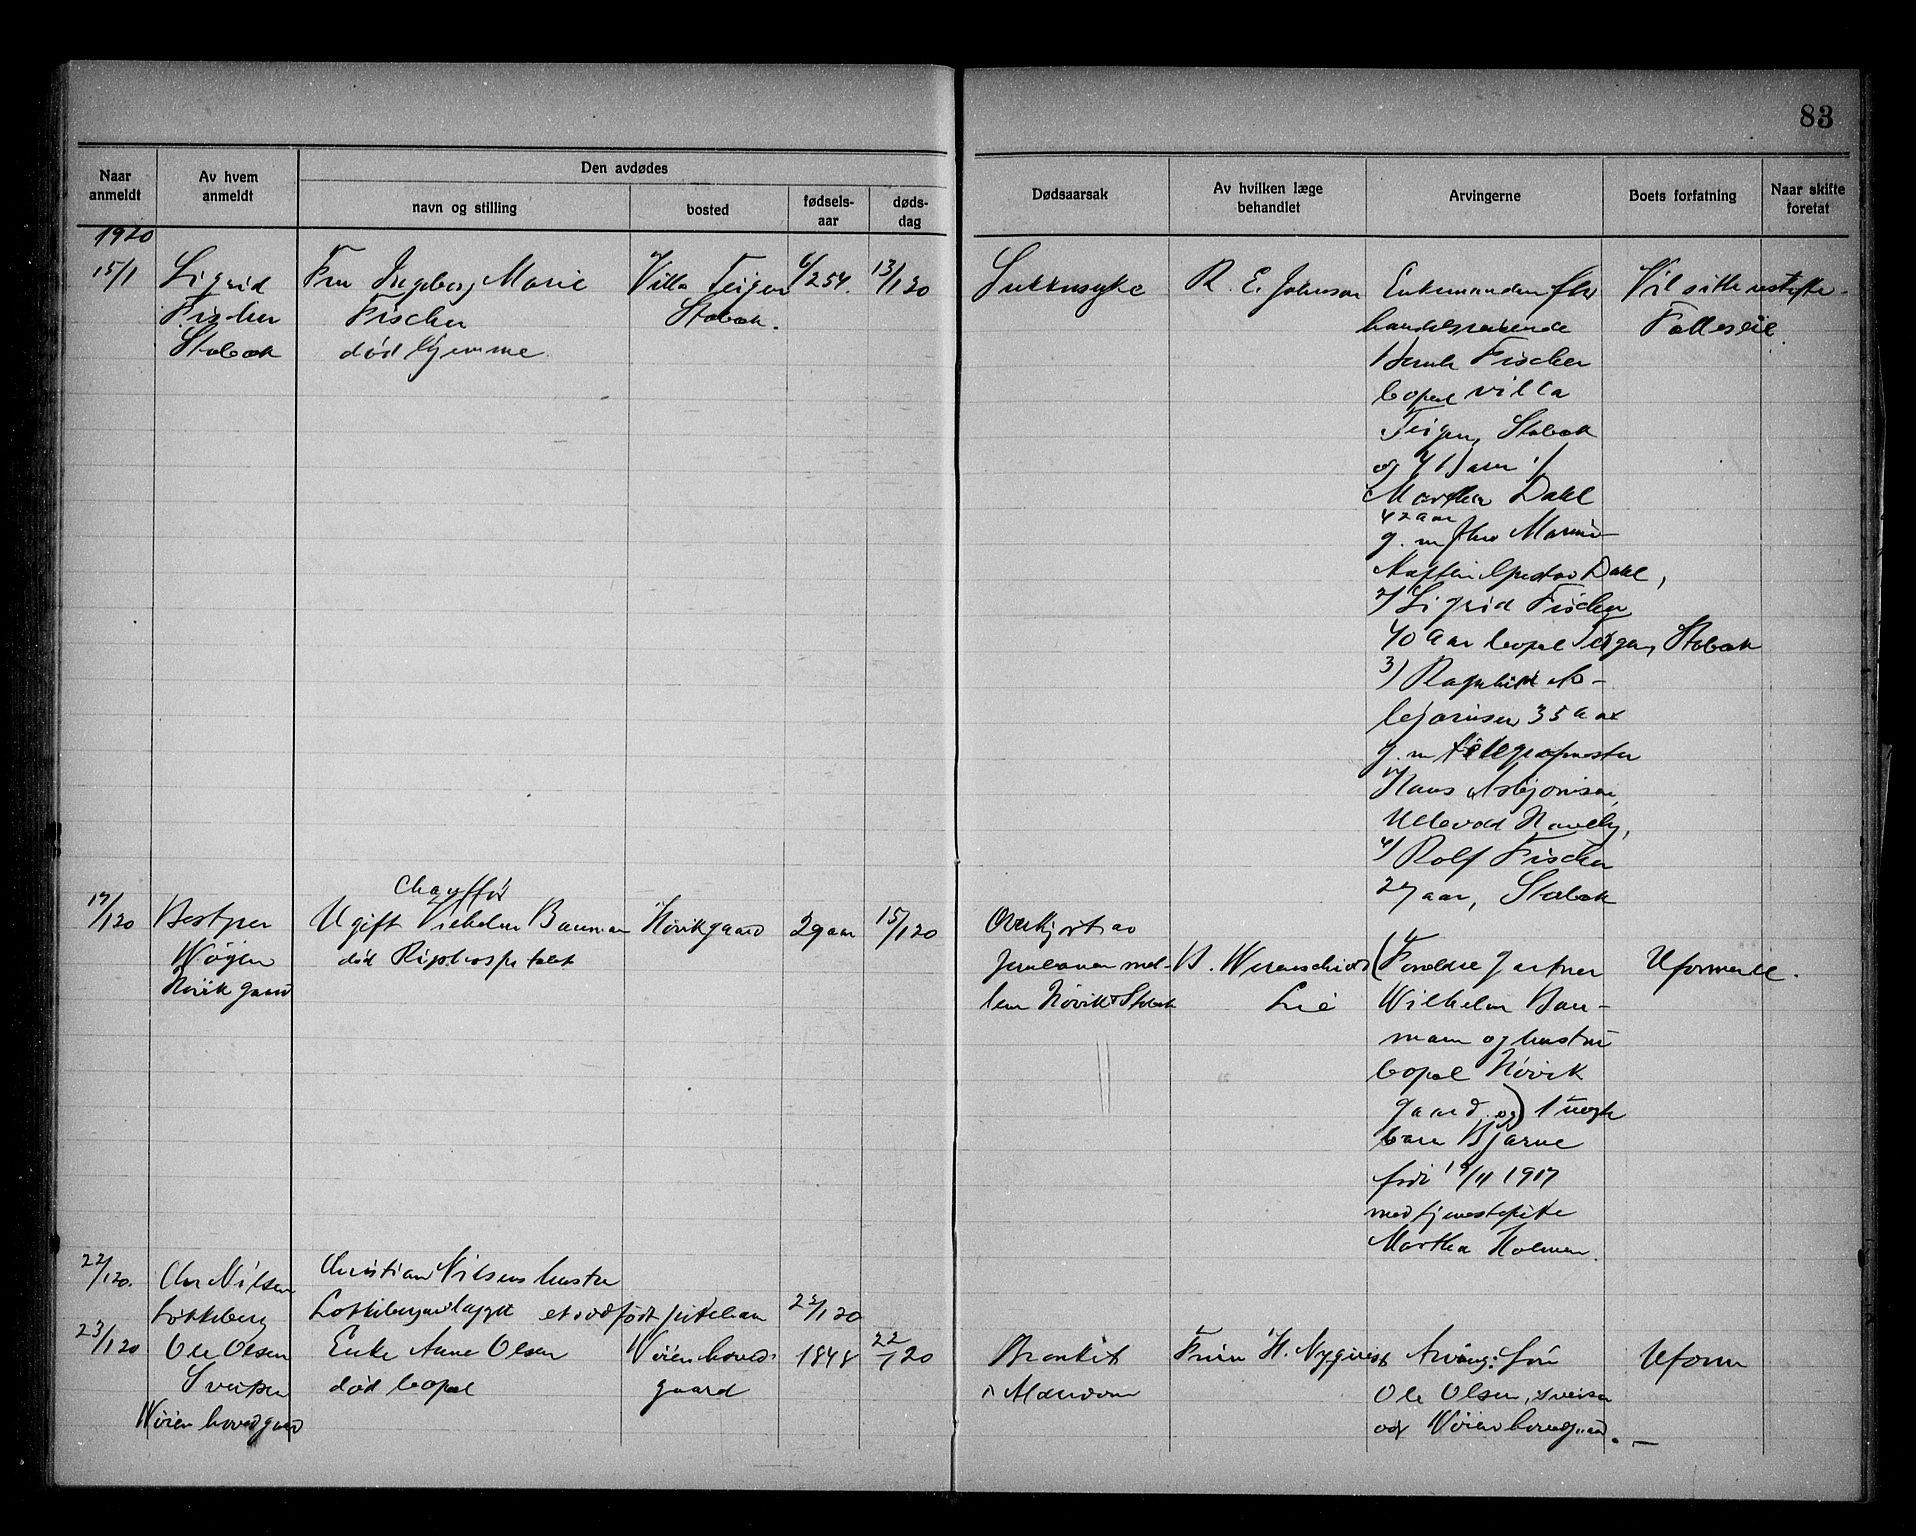 83
Naar anmeldt
Av hvem anmeldt
Den avdødes
navn og stilling
bosted
fødselsaar
dødsdag
Dødsaarsak
Av hvilken læge behandlet
Arvingerne
Boets forfatning
Naar skifte foretat
1920
15/1
Sigrid
Fischer
Stabæk
Fru Ingeborg Marie
Fischer
død hjemme
Villa Teigen
Stabæk.
6/2 54.
13/1 20
Sukkersyke
R. E. Johnson
Enkemanden fhv
handelsreisende
Fischer
bopæl villa
Teigen, Stabæk
og 4 Barn 1/
Martha Dahl
42 aar
g. m
Dahl,
2/ Sigrid Fischer
40 aar bopæl Teigen, Stabæk
3) Ragnhild As-
bjørnsen 35 aar
g. m telegrafmester
Hans Asbjørnsen,
4/ Rolf Fischer
27 aar, Stabæk
Vil sitte i uskiftet
Fælleseie.
17/1 20
Bestyrer
Wøyen
Høvik gaard
Chauffør
Ugift Vilhelm Bauman
død Rigshospitalet
Høvik gaard
29 aar
15/1 20
Overkjørt av
jernbanen mel-
lem Høvik & Stabæk
Lie
(Forældre Gartner
Wilhelm Bau-
mann og hustru
bopæl Høvik
gaard og) 1 uegte
barn Bjarne
født 19/11 1917
med tjenestepike
Martha Holmen.
Uformuende.
22/1 20.
Chr Nilsen
Løkkeberg
Christian Nilsens hustru
et dødfødt pikebarn
22/1 20
23/1 20
Ole Olsen
Sveiser
Wøien hovedgaard
Enke Anne Olsen
død bopæl
Wøien hoved-
gaard
1848
22/1 20
Bronkit
Alderdom
H. Nyquist
Arving: Søn
Ole Olsen, sveiser
adr Wøien hovedgaard.
Uform